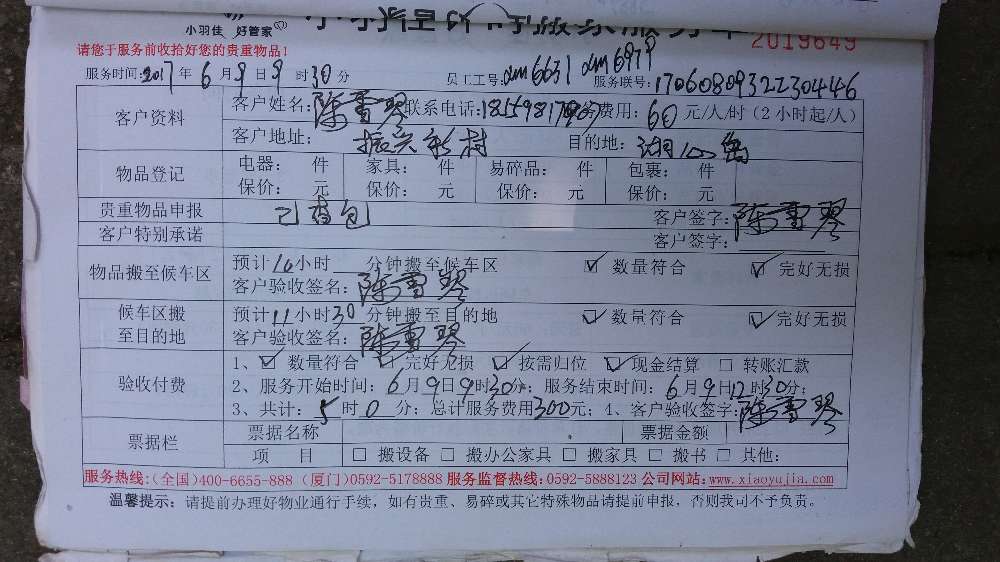 小羽佳 好管家
2019649
请您于服务前收拾好您的贵重物品!
服务时间:2017年6月9日9时30分 员工工号: 服务联号:17060809322304446
客户资料 客户姓名:陈雪琴 联系电话: 服务费用:60元/人/时(2小时起/人)
客户地址: 振兴新村 目的地:
物品登记 电器: 件 家具: 件 易碎品: 件 包裹: 件
保价: 元 保价: 元 保价: 元 保价: 元
贵重物品申报 已查包 客户签字:陈雪琴
客户特别承诺 客户签字:
物品搬至候车区 预计10小时 分钟搬至候车区 ☑ 数量符合 ☑ 完好无损
客户验收签名:陈雪琴
候车区搬至目的地 预计11小时30分钟搬至目的地 ☑ 数量符合 ☑ 完好无损
客户验收签名:陈雪琴
验收付费 1、☑ 数量符合 ☑ 完好无损 ☑ 按需归位 ☑ 现金结算 □ 转账汇款
2、服务开始时间:6月9日9时30分;服务结束时间:6月9日12时30分;
3、共计:5时0分;总计服务费用300元;4、客户验收签字:陈雪琴
票据栏 票据名称 票据金额
项 目 □ 搬设备 □ 搬办公家具 □ 搬家具 □ 搬书 □ 其他:
服务热线:(全国)400-6655-888 (厦门)0592-5178888 服务监督热线:0592-5888123 公司网站:www.xiaoyujia.com
温馨提示:请提前办理好物业通行手续,如有贵重、易碎或其它特殊物品请提前申报,否则我司不予负责。